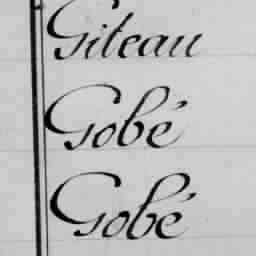 Giteau
Gobé
Gobé